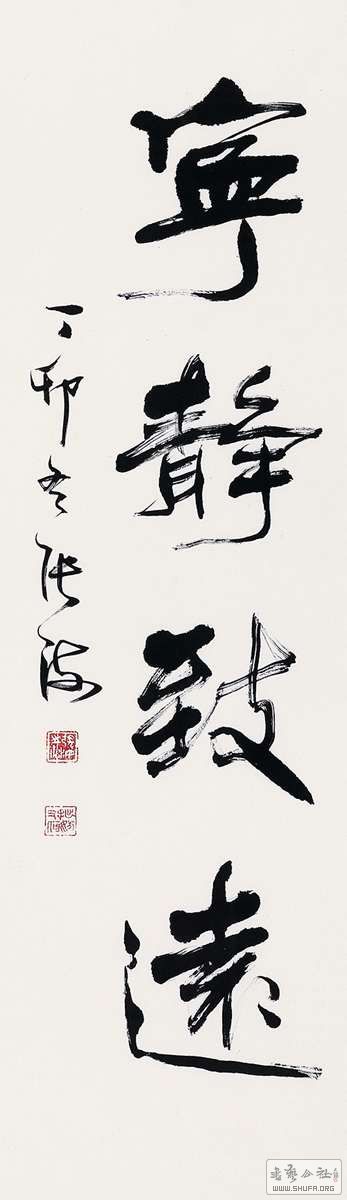 寧靜致遠
丁卯冬張海
書藝公社
WWW.SHUFA.ORG